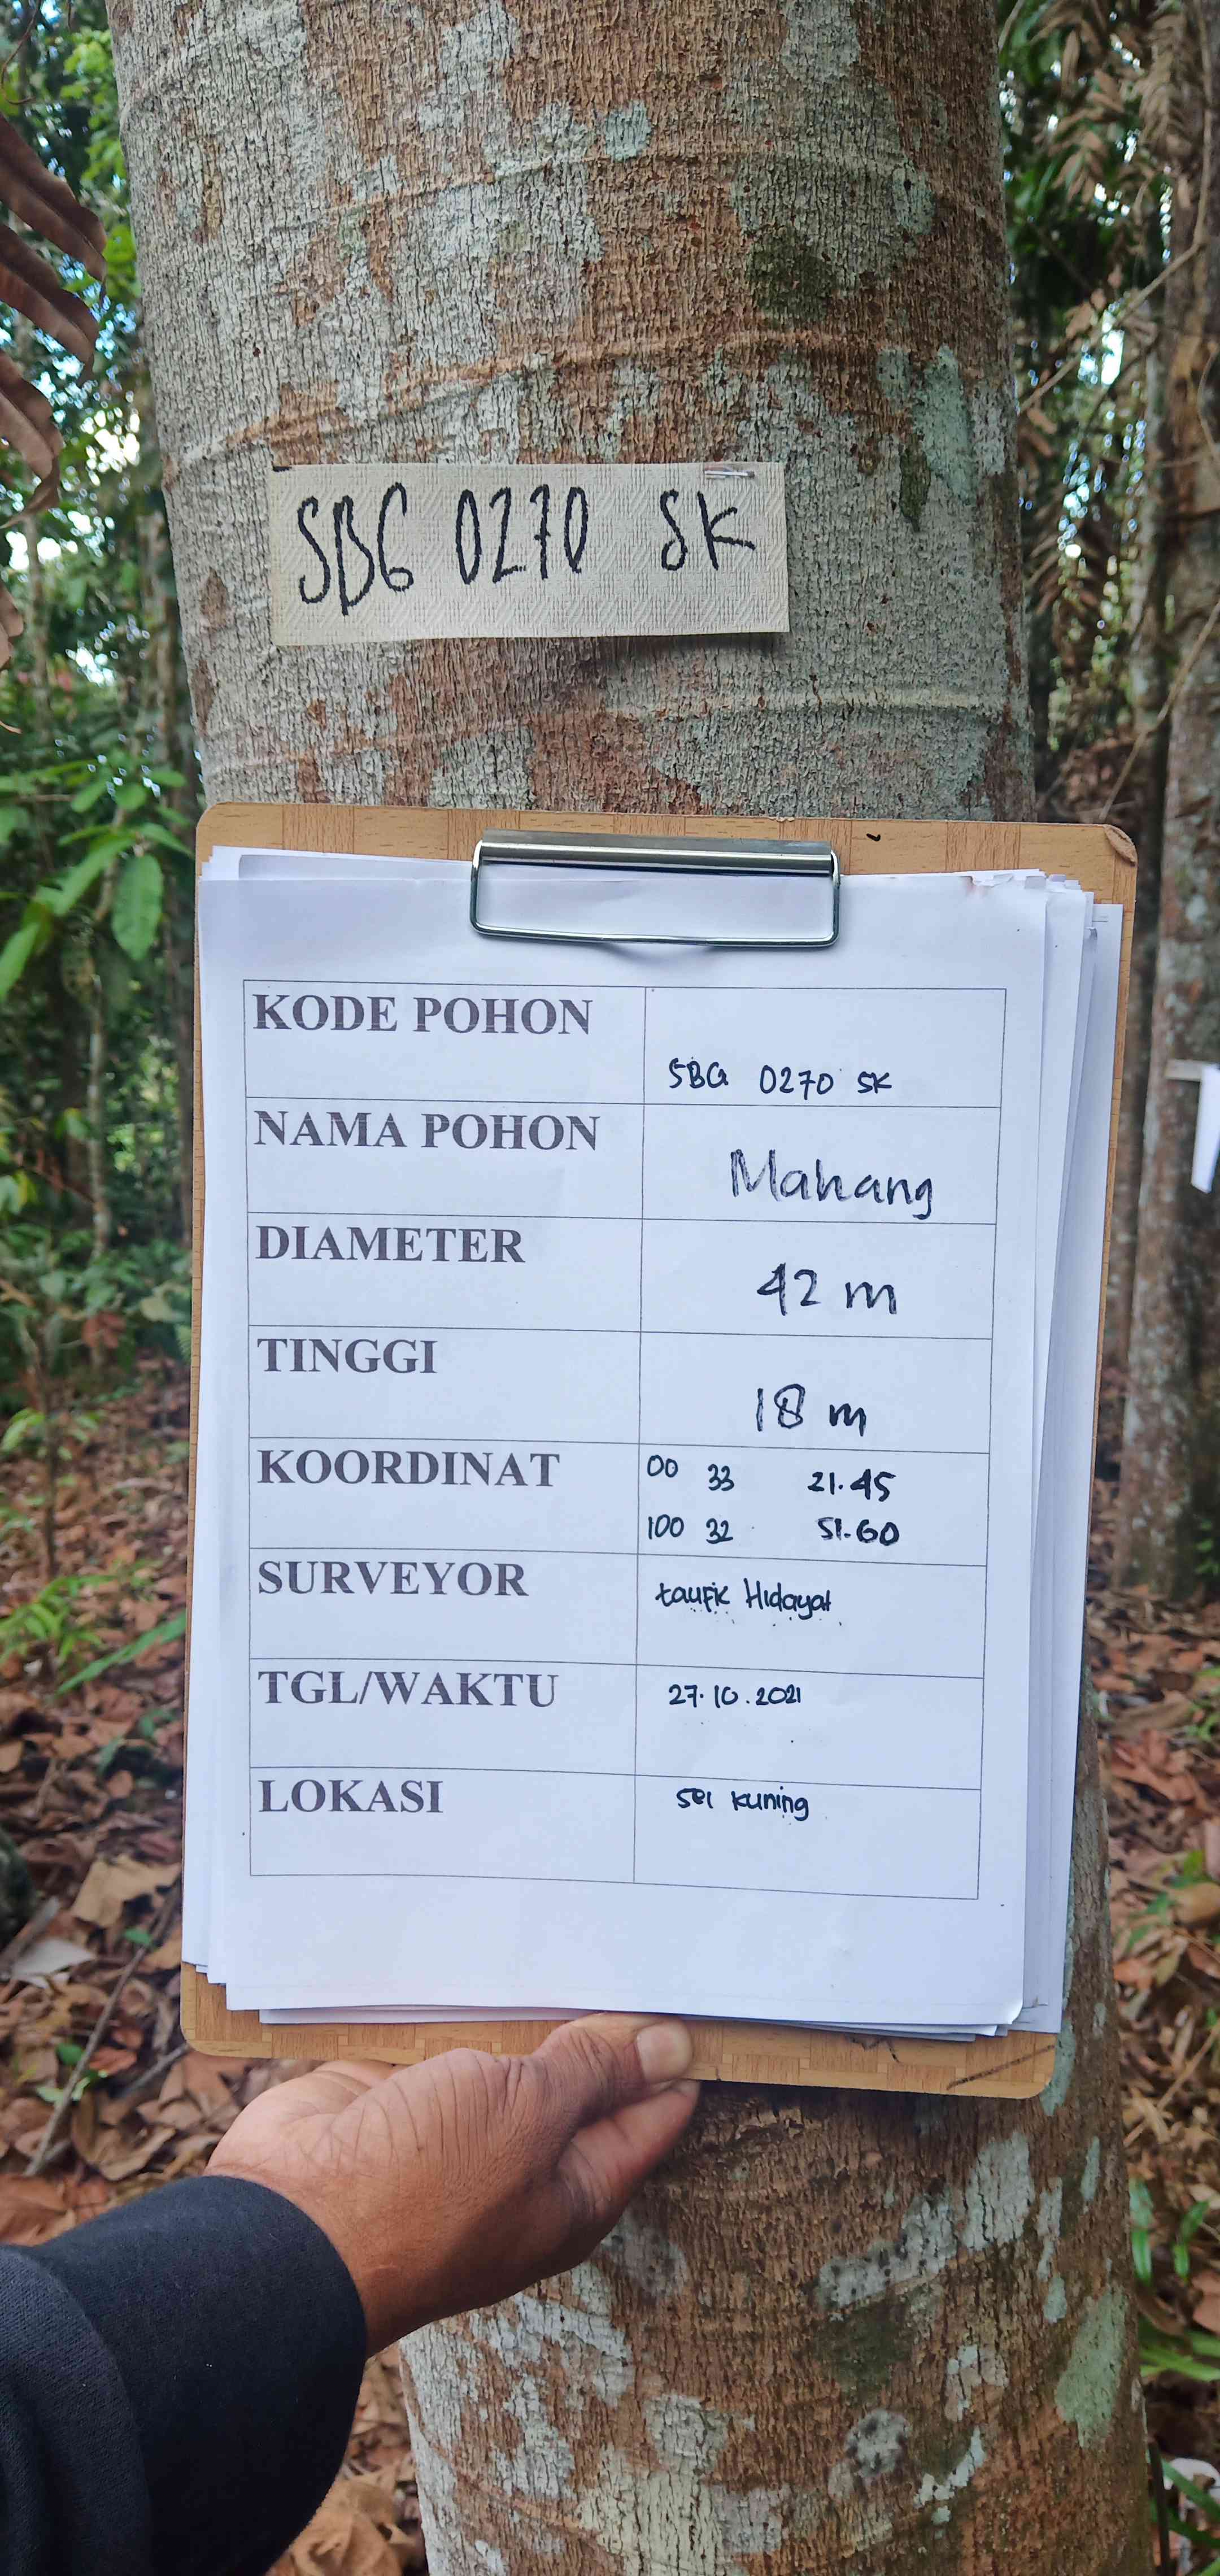 SBG 0270 SK
KODE POHON
SBG 0270 SK
NAMA POHON
Mahang
DIAMETER
42 m
TINGGI
18 m
KOORDINAT
00 33 21.45
100 32 51.60
SURVEYOR
taufik Hidayat
TGL/WAKTU
27.10.2021
LOKASI
sei kuning